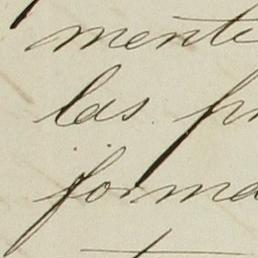 mente
las pr
forma